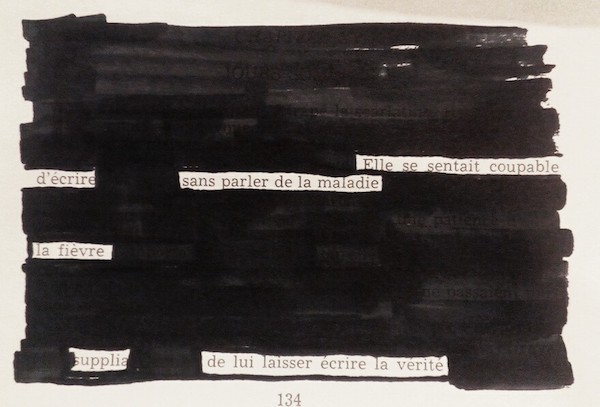 Elle se sentait coupable
d'écrire sans parler de la maladie
la fièvre
supplia de lui laisser écrire la vérité
134